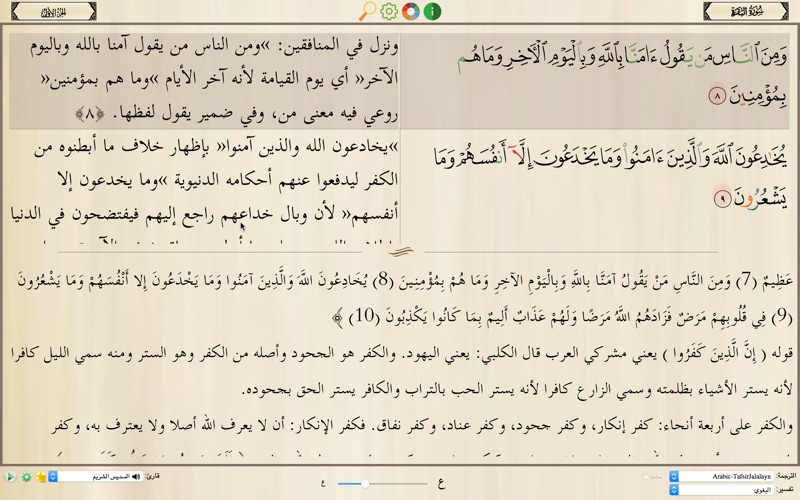 سُورَةُ البَقَرَةِ
الجُزْءُ الأَوَّلُ
وَمِنَ ٱلنَّاسِ مَن يَقُولُ ءَامَنَّا بِٱللَّهِ وَبِٱلْيَوْمِ ٱلْأَخِرِ وَمَا هُم
بِمُؤْمِنِينَ ٨
يُخَٰدِعُونَ ٱللَّهَ وَٱلَّذِينَ ءَامَنُوا۟ وَمَا يَخْدَعُونَ إِلَّآ أَنفُسَهُمْ وَمَا
يَشْعُرُونَ ٩
ونزل في المنافقين: »ومن الناس من يقول آمنا بالله وباليوم
الآخر« أي يوم القيامة لأنه آخر الأيام »وما هم بمؤمنين«
روعي فيه معنى من، وفي ضمير يقول لفظها. ﴿٨﴾
»يخادعون الله والذين آمنوا« بإظهار خلاف ما أبطنوه من
الكفر ليدفعوا عنهم أحكامه الدنيوية »وما يخدعون إلا
أنفسهم« لأن وبال خداعهم راجع إليهم فيفتضحون في الدنيا
عَظِيمٌ (7) وَمِنَ النَّاسِ مَنْ يَقُولُ آمَنَّا بِاللَّهِ وَبِالْيَوْمِ الآخِرِ وَمَا هُمْ بِمُؤْمِنِينَ (8) يُخَادِعُونَ اللَّهَ وَالَّذِينَ آمَنُوا وَمَا يَخْدَعُونَ إِلا أَنْفُسَهُمْ وَمَا يَشْعُرُونَ
(9) فِي قُلُوبِهِمْ مَرَضٌ فَزَادَهُمُ اللَّهُ مَرَضًا وَلَهُمْ عَذَابٌ أَلِيمٌ بِمَا كَانُوا يَكْذِبُونَ (10) ﴾
قوله ( إِنَّ الَّذِينَ كَفَرُوا ) يعني مشركي العرب قال الكلبي: يعني اليهود. والكفر هو الجحود وأصله من الكفر وهو الستر ومنه سمي الليل كافرا
لأنه يستر الأشياء بظلمته وسمي الزارع كافرا لأنه يستر الحب بالتراب والكافر يستر الحق بجحوده.
والكفر على أربعة أنحاء: كفر إنكار، وكفر جحود، وكفر عناد، وكفر نفاق. فكفر الإنكار: أن لا يعرف الله أصلا ولا يعترف به، وكفر
الترجمة: Arabic-TafsirJalalayn
تفسير: البغوي
ع
ع
قارئ: السديس الشريم